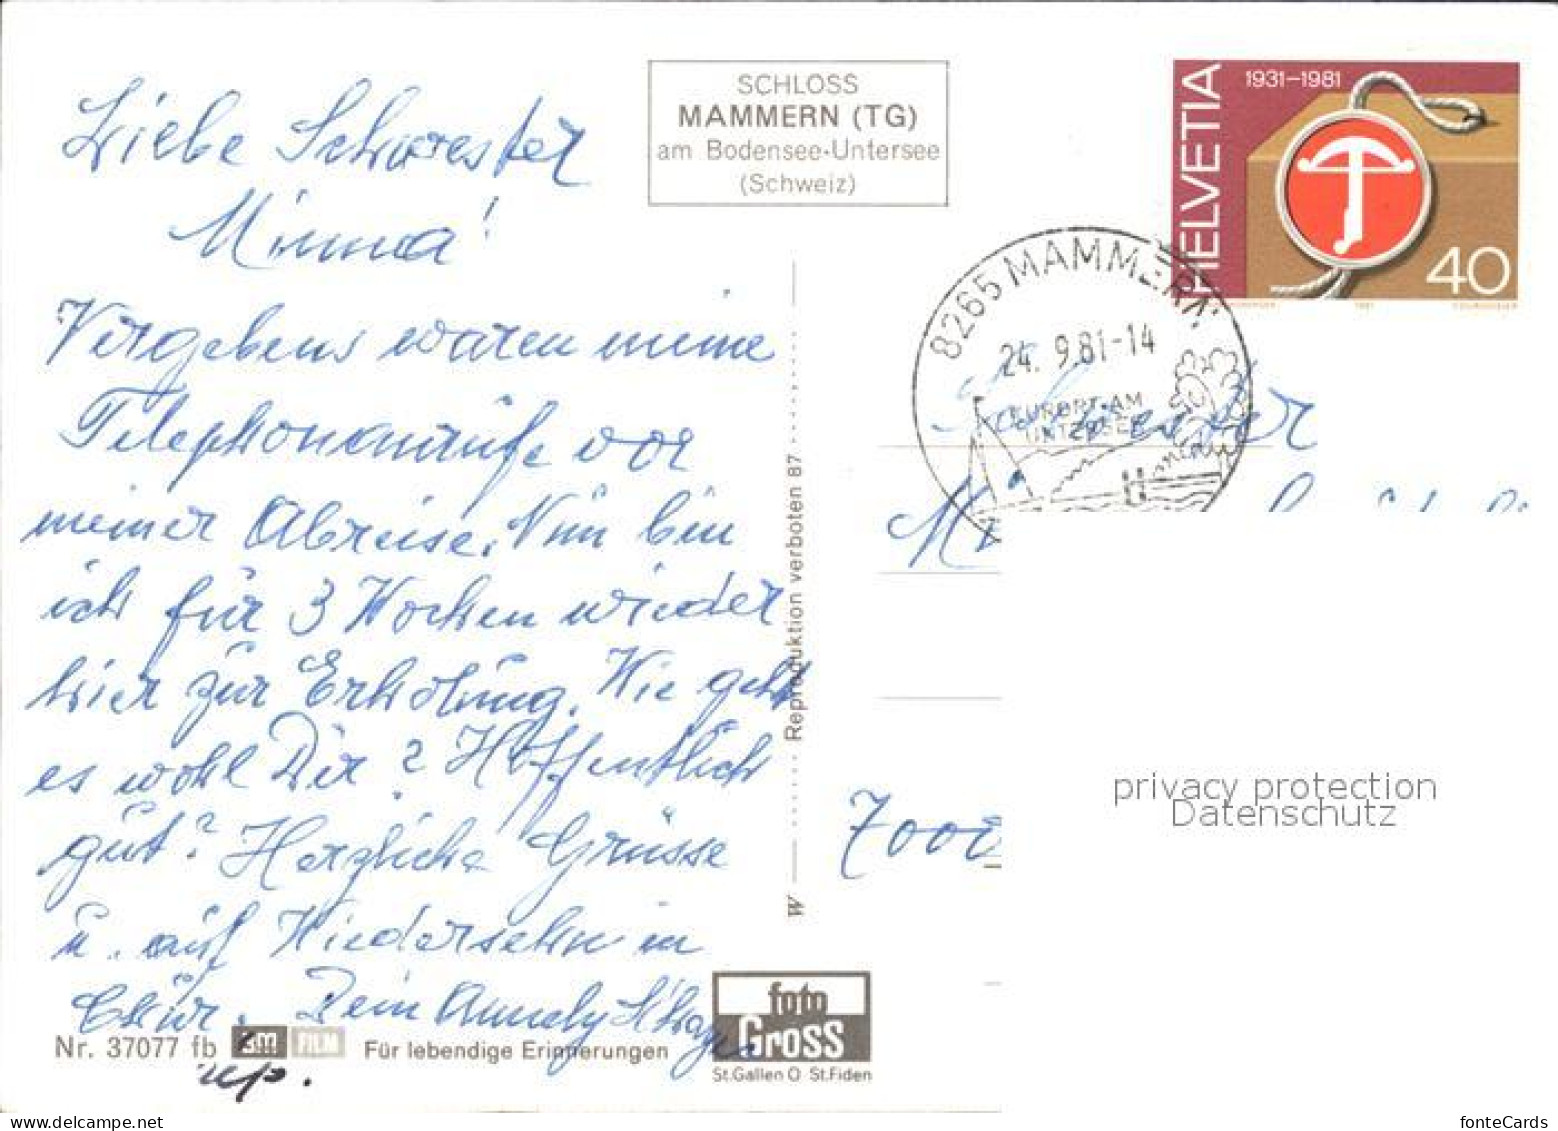 Liebe Schwester
Minna!
Vergebens waren meine
Telephonanrufe vor
meiner Abreise. Nun bin
ich für 3 Wochen wieder
hier zur Erholung. Wie geht
es wohl Dir? Hoffentlich
gut? Herzliche Grüsse
u. auf Wiedersehn in
Chur. Dein Annely
SCHLOSS
MAMMERN (TG)
am Bodensee-Untersee
(Schweiz)
Reproduktion verboten 87
W
HELVETIA
1931–1981
40
1981
8265 MAMMERN
24. 9.81-14
KURORT AM
UNTERSEE
Schwester
7000
Nr. 37077 fb
3M FILM
Für lebendige Erinnerungen
foto
Gross
St.Gallen O St.Fiden
privacy protection
Datenschutz
fonteCards